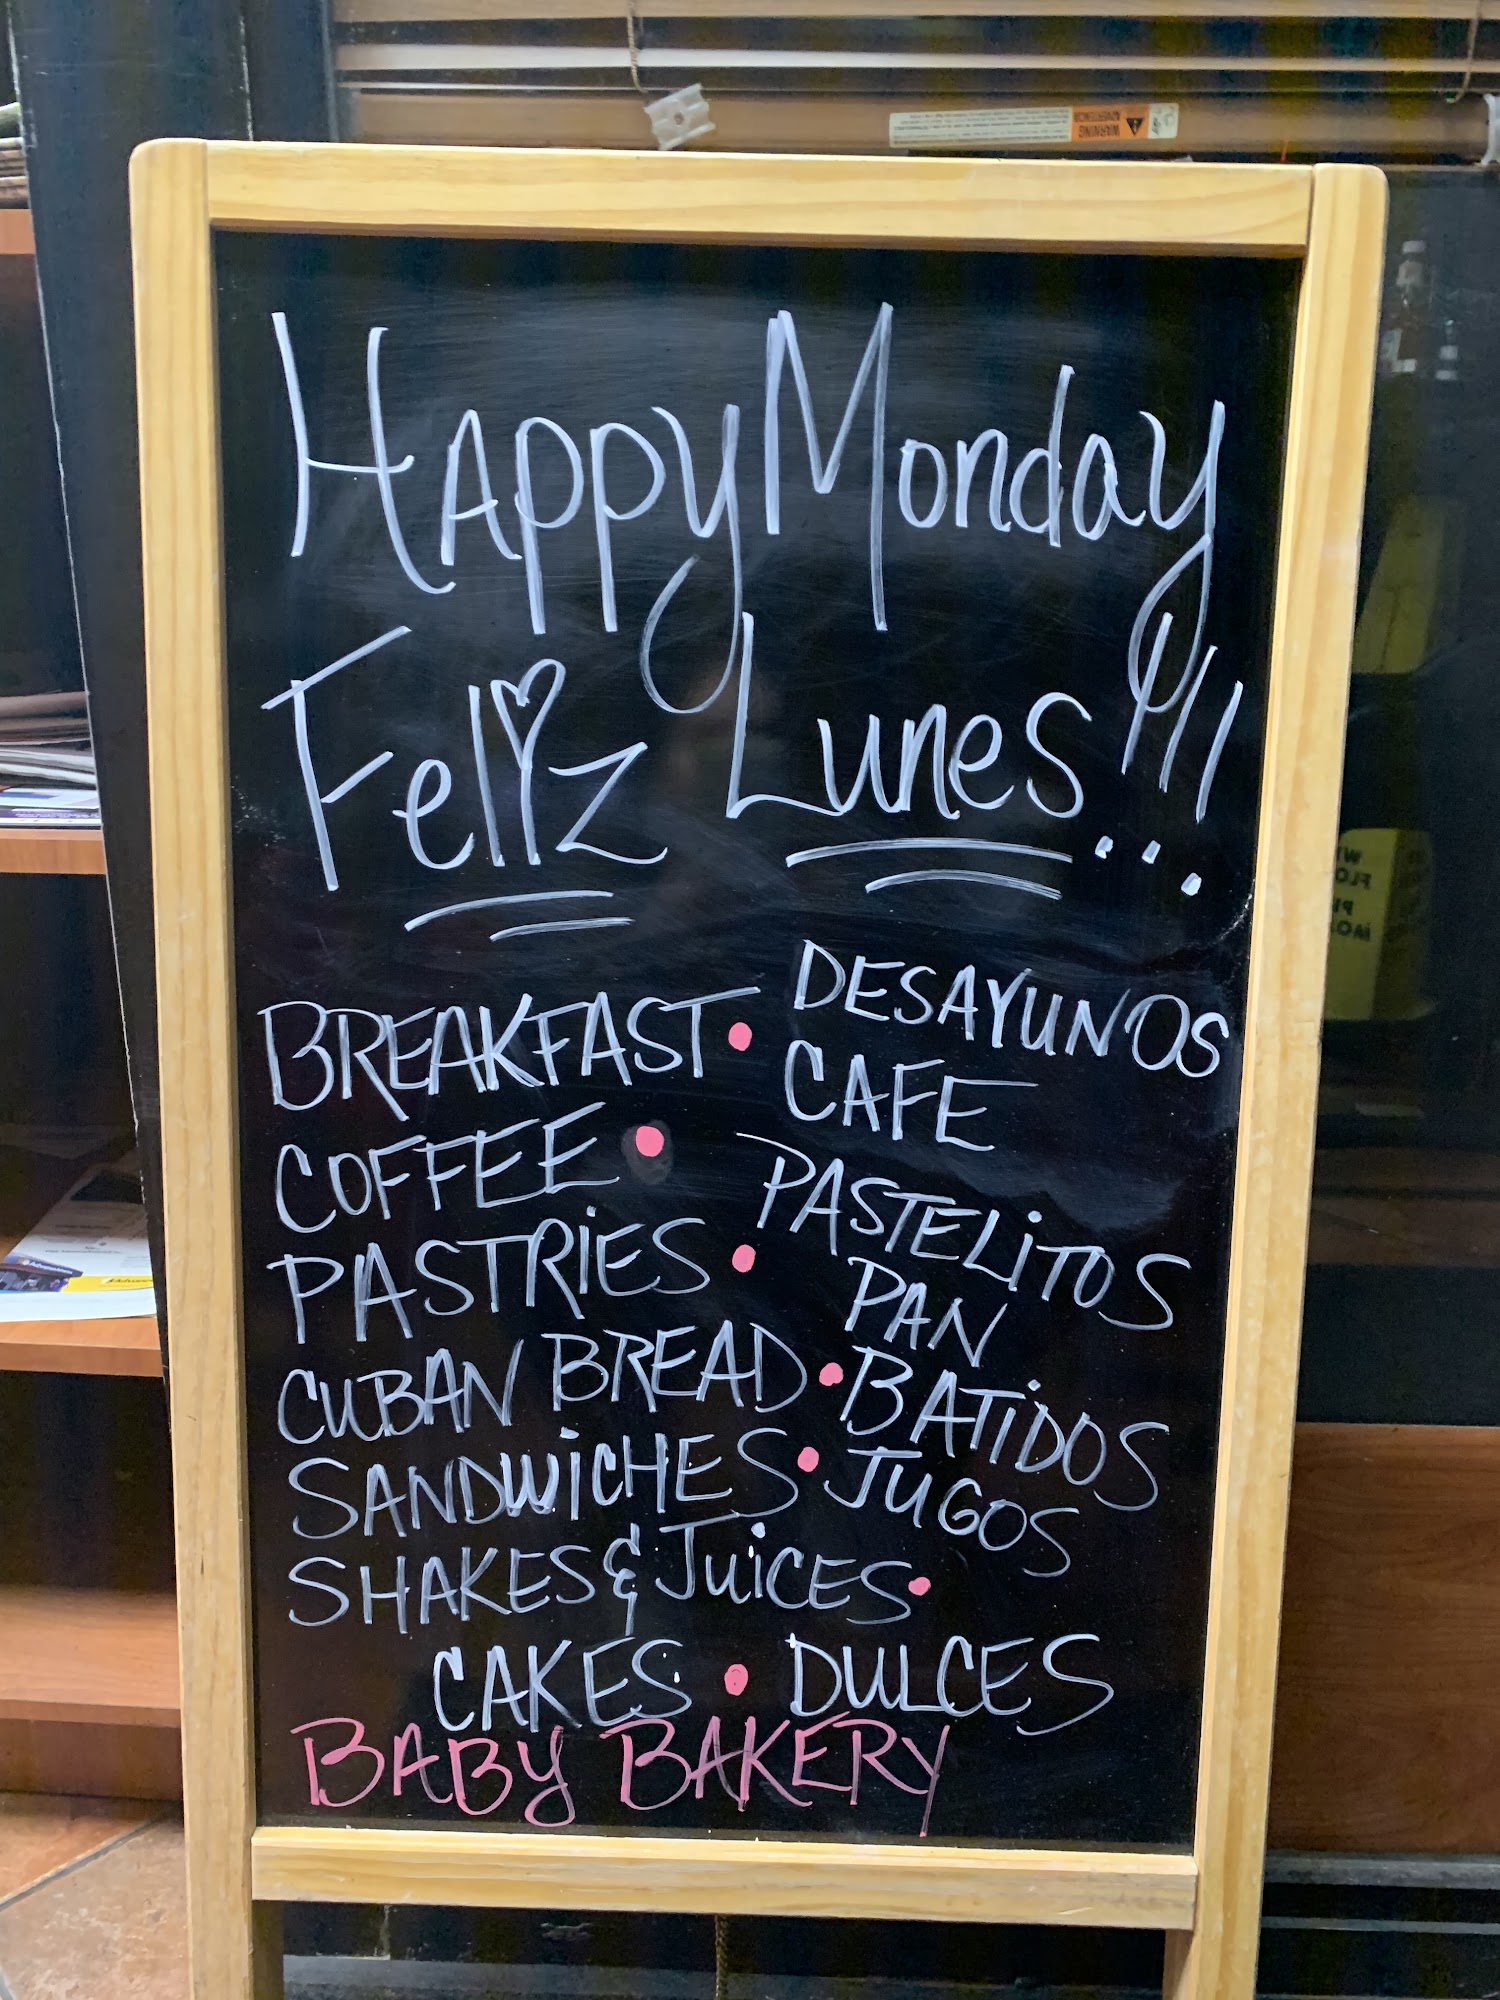 WARNING
ADVERTENCIA
Happy Monday
Feliz Lunes!!!
BREAKFAST • DESAYUNOS
COFFEE • CAFE
PASTRIES • PASTELITOS
CUBAN BREAD • PAN
SANDWICHES • BATIDOS
SHAKES & JUICES • JUGOS
CAKES • DULCES
BABY BAKERY